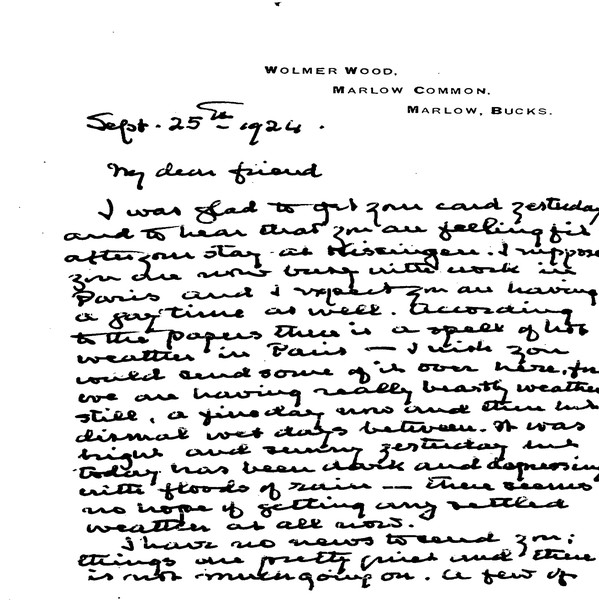 WOLMER WOOD,
MARLOW COMMON.
MARLOW, BUCKS.
Sept. 25th 1924.
My dear friend
I was glad to get your card yesterday
and to hear that you are feeling fit
after your stay at Kissingen. I suppose
you are now busy with work in
Paris and I expect you are having
a gay time as well. According
to the papers there is a spell of hot
weather in Paris — I wish you
would send some of it over here, for
we are having really beastly weather
still, a fine day now and then but
dismal wet days between. It was
bright and sunny yesterday but
today has been dark and depressing
with floods of rain — there seems
no hope of getting any settled
weather at all now.
I have no news to send you;
things are pretty quiet and there
is not much going on. A few of